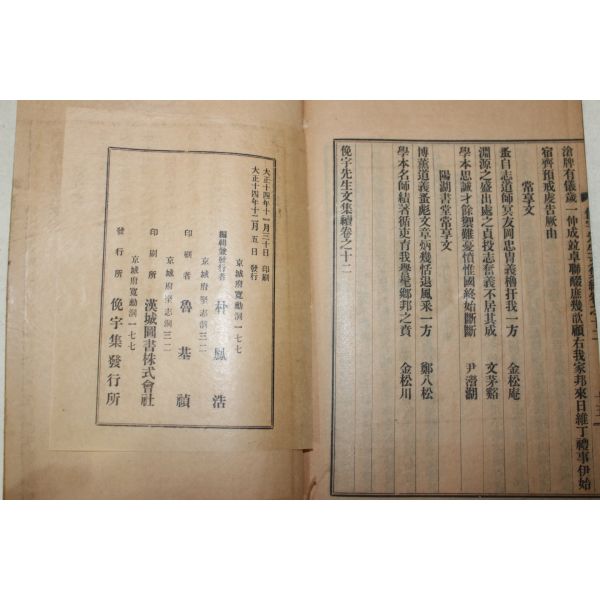 滄牌有儀歲一仲成竝卓聯醊庶幾歆顧右我家邦來日維丁禮事伊始
宿齊預戒虔告厥由
常享文
蚤自志道師冥友岡忠胄義櫓扞我一方 金松庵
淵源之盛出處之貞投志奮義不居其成 文茅谿
學本思誠才餘禦難憂憤惟國終始斷斷 尹澘湖
陽湖書堂常享文
博薰道義蚤彪文章炳幾恬退風乘一方 鄭八松
學本名師結著循吏育我學髦鄕邦之賁 金松川
俛宇先生文集續卷之十二
大正十四年十一月三十日 印刷
大正十四年十二月五日 發行
京城府寬勳洞一七七
編輯兼發行者 朴鳳浩
京城府堅志洞三二
印刷者 魯基禎
京城府堅志洞三二
印刷所 漢城圖書株式會社
京城府寬勳洞一七七
發行所 俛宇集發行所